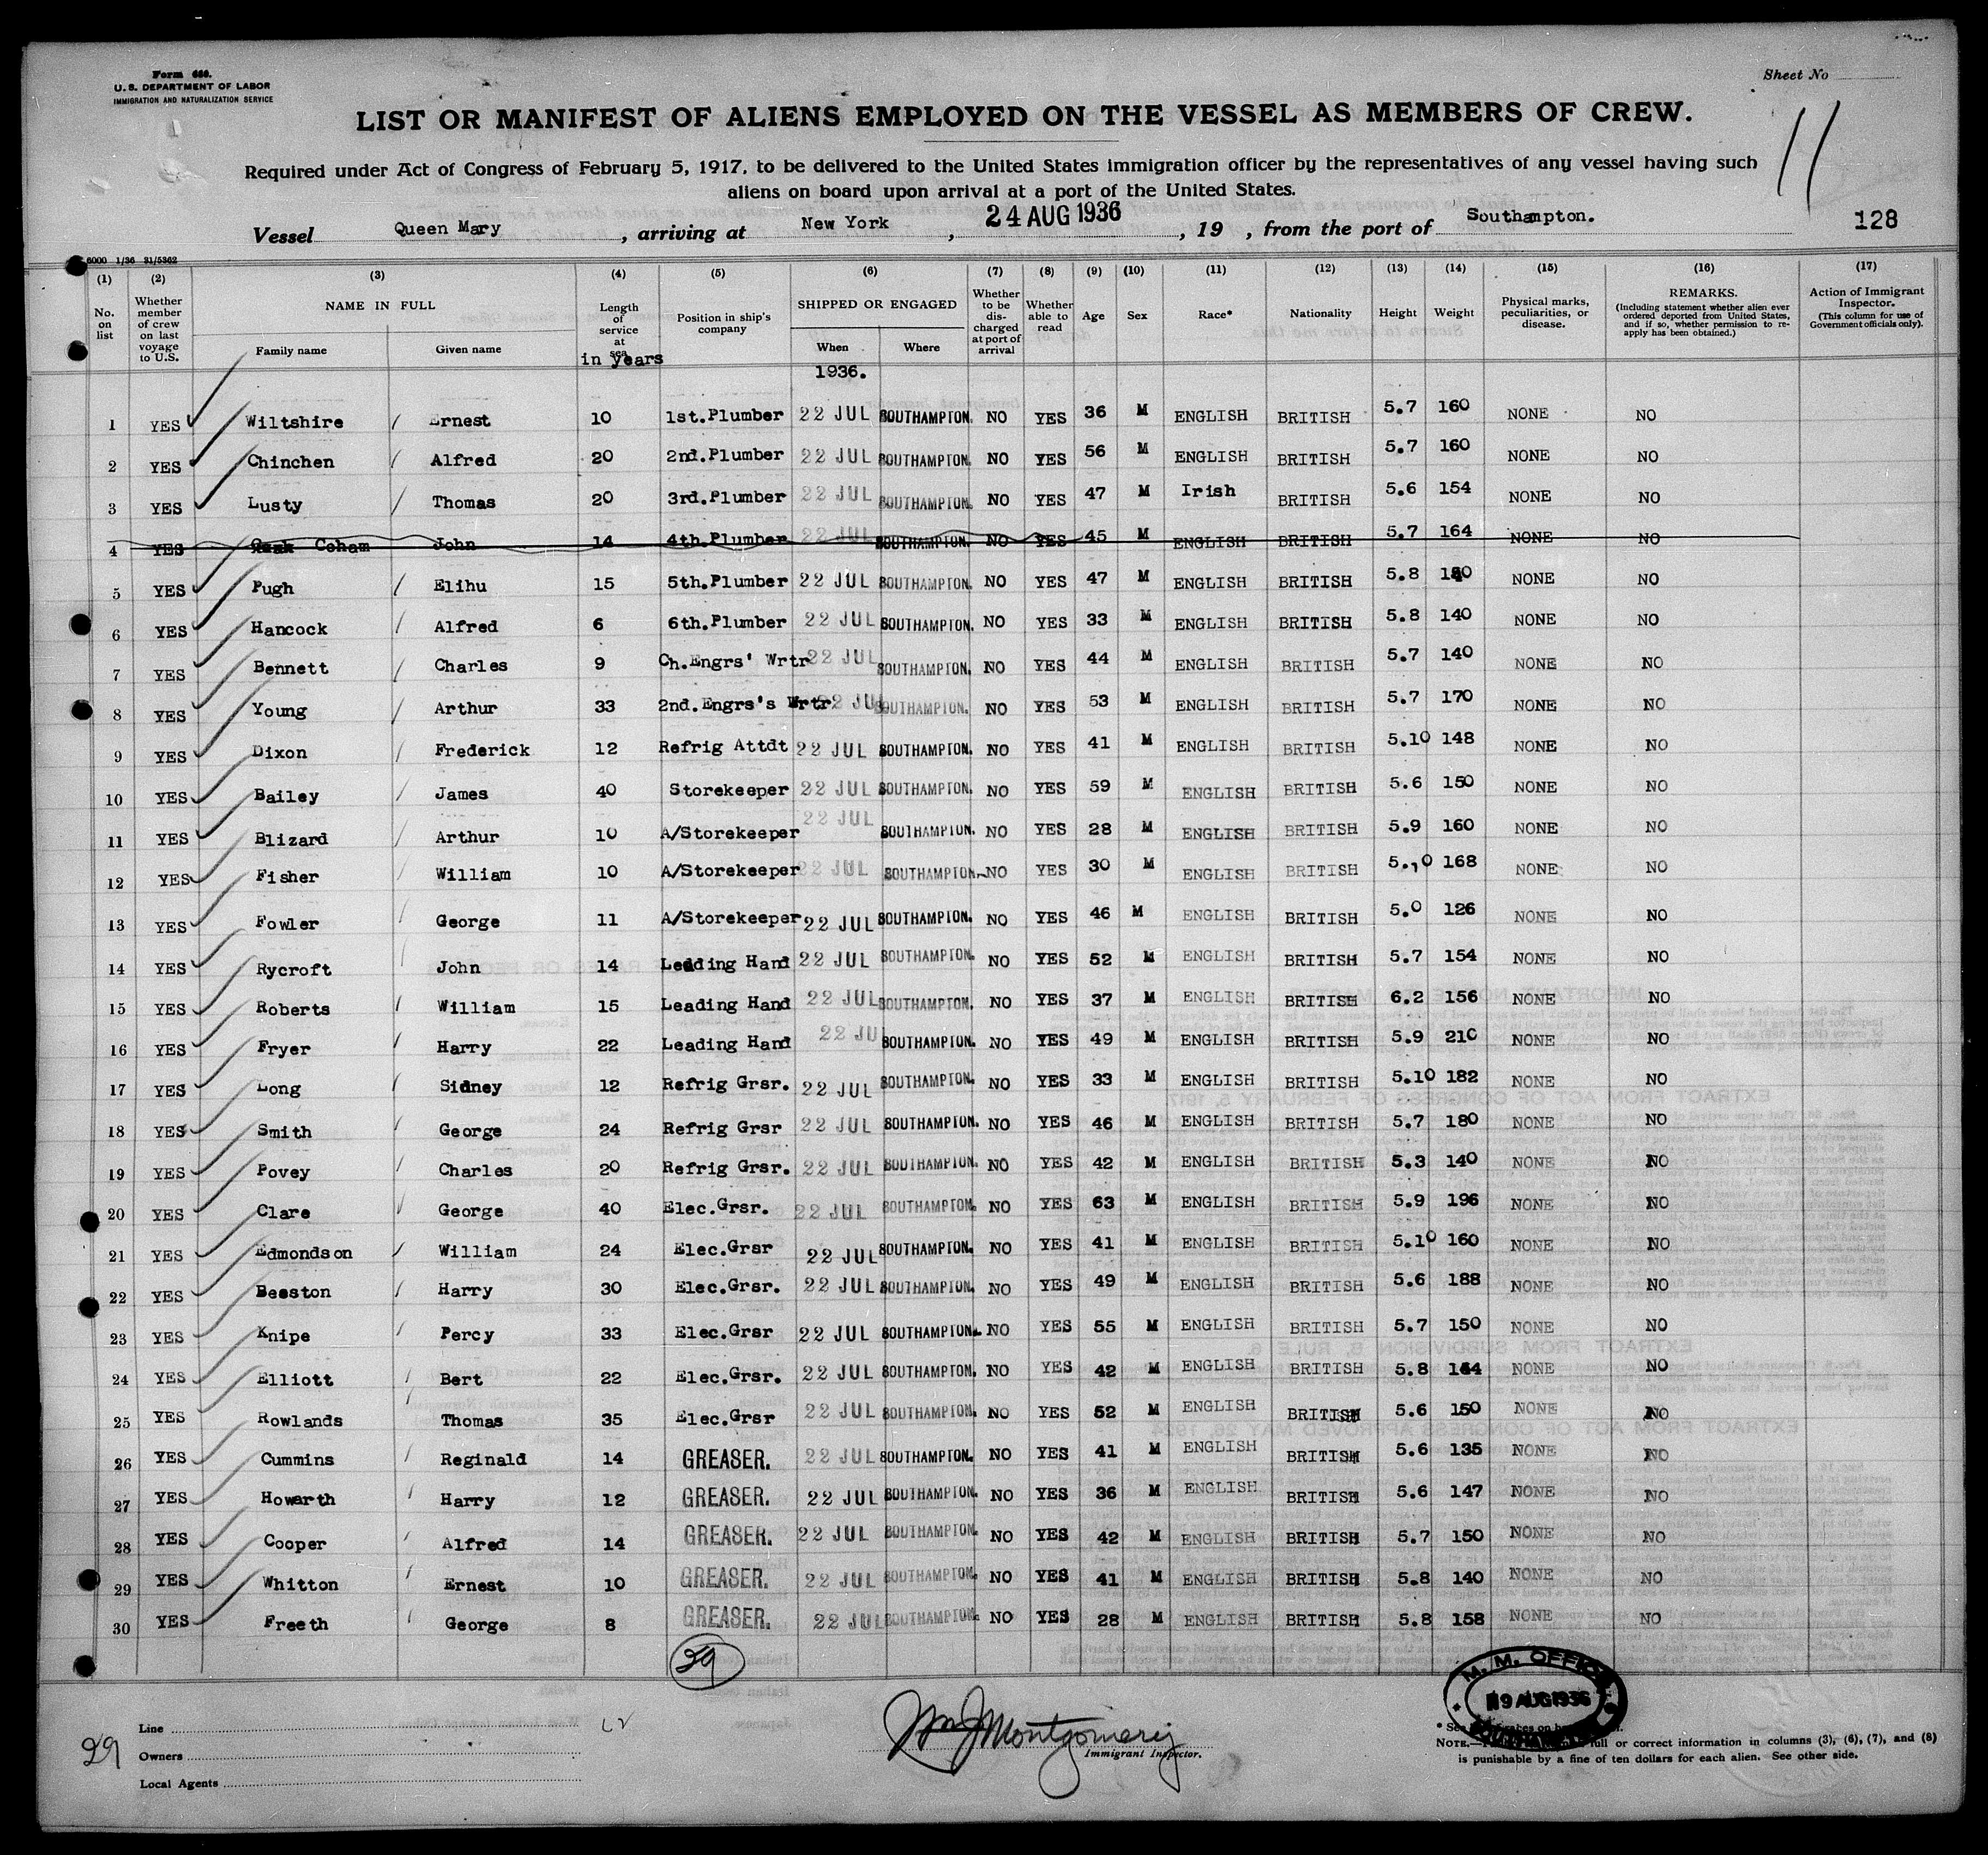 Form 680.
U. S. DEPARTMENT OF LABOR
IMMIGRATION AND NATURALIZATION SERVICE
Sheet No
LIST OR MANIFEST OF ALIENS EMPLOYED ON THE VESSEL AS MEMBERS OF CREW.
11
Required under Act of Congress of February 5, 1917, to be delivered to the United States immigration officer by the representatives of any vessel having such
aliens on board upon arrival at a port of the United States.
Vessel Queen Mary, arriving at New York, 24 AUG 1936, 19 , from the port of Southampton. 128
6000 1/36 31/5362
(1) (2) (3) (4) (5) (6) (7) (8) (9) (10) (11) (12) (13) (14) (15) (16) (17)
No. on list
Whether member of crew on last voyage to U.S.
NAME IN FULL
Family name Given name
Length of service at sea
in years
Position in ship's company
SHIPPED OR ENGAGED
When Where
1936.
Whether to be discharged at port of arrival
Whether able to read
Age Sex Race* Nationality Height Weight
Physical marks, peculiarities, or disease.
REMARKS.
(Including statement whether alien ever ordered deported from United States, and if so, whether permission to reapply has been obtained.)
Action of Immigrant Inspector.
(This column for use of Government officials only).
1 YES Wiltshire Ernest 10 1st.Plumber 22 JUL SOUTHAMPTON. NO YES 36 M ENGLISH BRITISH 5.7 160 NONE NO
2 YES Chinchen Alfred 20 2nd.Plumber 22 JUL SOUTHAMPTON. NO YES 56 M ENGLISH BRITISH 5.7 160 NONE NO
3 YES Lusty Thomas 20 3rd.Plumber 22 JUL SOUTHAMPTON. NO YES 47 M Irish BRITISH 5.6 154 NONE NO
4 YES Coham John 14 4th.Plumber 22 JUL SOUTHAMPTON. NO YES 45 M ENGLISH BRITISH 5.7 164 NONE NO
5 YES Pugh Elihu 15 5th.Plumber 22 JUL SOUTHAMPTON. NO YES 47 M ENGLISH BRITISH 5.8 NONE NO
6 YES Hancock Alfred 6 6th.Plumber 22 JUL SOUTHAMPTON. NO YES 33 M ENGLISH BRITISH 5.8 140 NONE NO
7 YES Bennett Charles 9 Ch.Engrs' Wrtr 22 JUL SOUTHAMPTON. NO YES 44 M ENGLISH BRITISH 5.7 140 NONE NO
8 YES Young Arthur 33 2nd.Engrs's Wrtr 22 JUL SOUTHAMPTON. NO YES 53 M ENGLISH BRITISH 5.7 170 NONE NO
9 YES Dixon Frederick 12 Refrig Attdt 22 JUL SOUTHAMPTON. NO YES 41 M ENGLISH BRITISH 5.10 148 NONE NO
10 YES Bailey James 40 Storekeeper 22 JUL SOUTHAMPTON. NO YES 59 M ENGLISH BRITISH 5.6 150 NONE NO
11 YES Blizard Arthur 10 A/Storekeeper 22 JUL SOUTHAMPTON. NO YES 28 M ENGLISH BRITISH 5.9 160 NONE NO
12 YES Fisher William 10 A/Storekeeper 22 JUL SOUTHAMPTON. NO YES 30 M ENGLISH BRITISH 5.10 168 NONE NO
13 YES Fowler George 11 A/Storekeeper 22 JUL SOUTHAMPTON. NO YES 46 M ENGLISH BRITISH 5.0 126 NONE NO
14 YES Rycroft John 14 Leading Hand 22 JUL SOUTHAMPTON. NO YES 52 M ENGLISH BRITISH 5.7 154 NONE NO
15 YES Roberts William 15 Leading Hand 22 JUL SOUTHAMPTON. NO YES 37 M ENGLISH BRITISH 6.2 156 NONE NO
16 YES Fryer Harry 22 Leading Hand 22 JUL SOUTHAMPTON. NO YES 49 M ENGLISH BRITISH 5.9 210 NONE NO
17 YES Long Sidney 12 Refrig Grsr. 22 JUL SOUTHAMPTON. NO YES 33 M ENGLISH BRITISH 5.10 182 NONE NO
18 YES Smith George 24 Refrig Grsr 22 JUL SOUTHAMPTON. NO YES 46 M ENGLISH BRITISH 5.7 180 NONE NO
19 YES Povey Charles 20 Refrig Grsr. 22 JUL SOUTHAMPTON. NO YES 42 M ENGLISH BRITISH 5.3 140 NONE NO
20 YES Clare George 40 Elec.Grsr. 22 JUL SOUTHAMPTON. NO YES 63 M ENGLISH BRITISH 5.9 196 NONE NO
21 YES Edmondson William 24 Elec.Grsr 22 JUL SOUTHAMPTON. NO YES 41 M ENGLISH BRITISH 5.10 160 NONE NO
22 YES Beeston Harry 30 Elec.Grsr. 22 JUL SOUTHAMPTON. NO YES 49 M ENGLISH BRITISH 5.6 188 NONE NO
23 YES Knipe Percy 33 Elec.Grsr 22 JUL SOUTHAMPTON. NO YES 55 M ENGLISH BRITISH 5.7 150 NONE NO
24 YES Elliott Bert 22 Elec.Grsr. 22 JUL SOUTHAMPTON. NO YES 42 M ENGLISH BRITISH 5.8 NONE NO
25 YES Rowlands Thomas 35 Elec.Grsr 22 JUL SOUTHAMPTON. NO YES 52 M ENGLISH BRITISH 5.6 150 NONE NO
26 YES Cummins Reginald 14 GREASER. 22 JUL SOUTHAMPTON. NO YES 41 M ENGLISH BRITISH 5.6 135 NONE NO
27 YES Howarth Harry 12 GREASER. 22 JUL SOUTHAMPTON. NO YES 36 M ENGLISH BRITISH 5.6 147 NONE NO
28 YES Cooper Alfred 14 GREASER. 22 JUL SOUTHAMPTON. NO YES 42 M ENGLISH BRITISH 5.7 150 NONE NO
29 YES Whitton Ernest 10 GREASER. 22 JUL SOUTHAMPTON. NO YES 41 M ENGLISH BRITISH 5.8 140 NONE NO
30 YES Freeth George 8 GREASER. 22 JUL SOUTHAMPTON. NO YES 28 M ENGLISH BRITISH 5.8 158 NONE NO
29
M. M. OFFICE
19 AUG 1936
SOUTHAMPTON
29
Line
Owners
Local Agents
Wm J Montgomery
Immigrant Inspector.
NOTE.— full or correct information in columns (3), (6), (7), and (8)
is punishable by a fine of ten dollars for each alien. See other side.